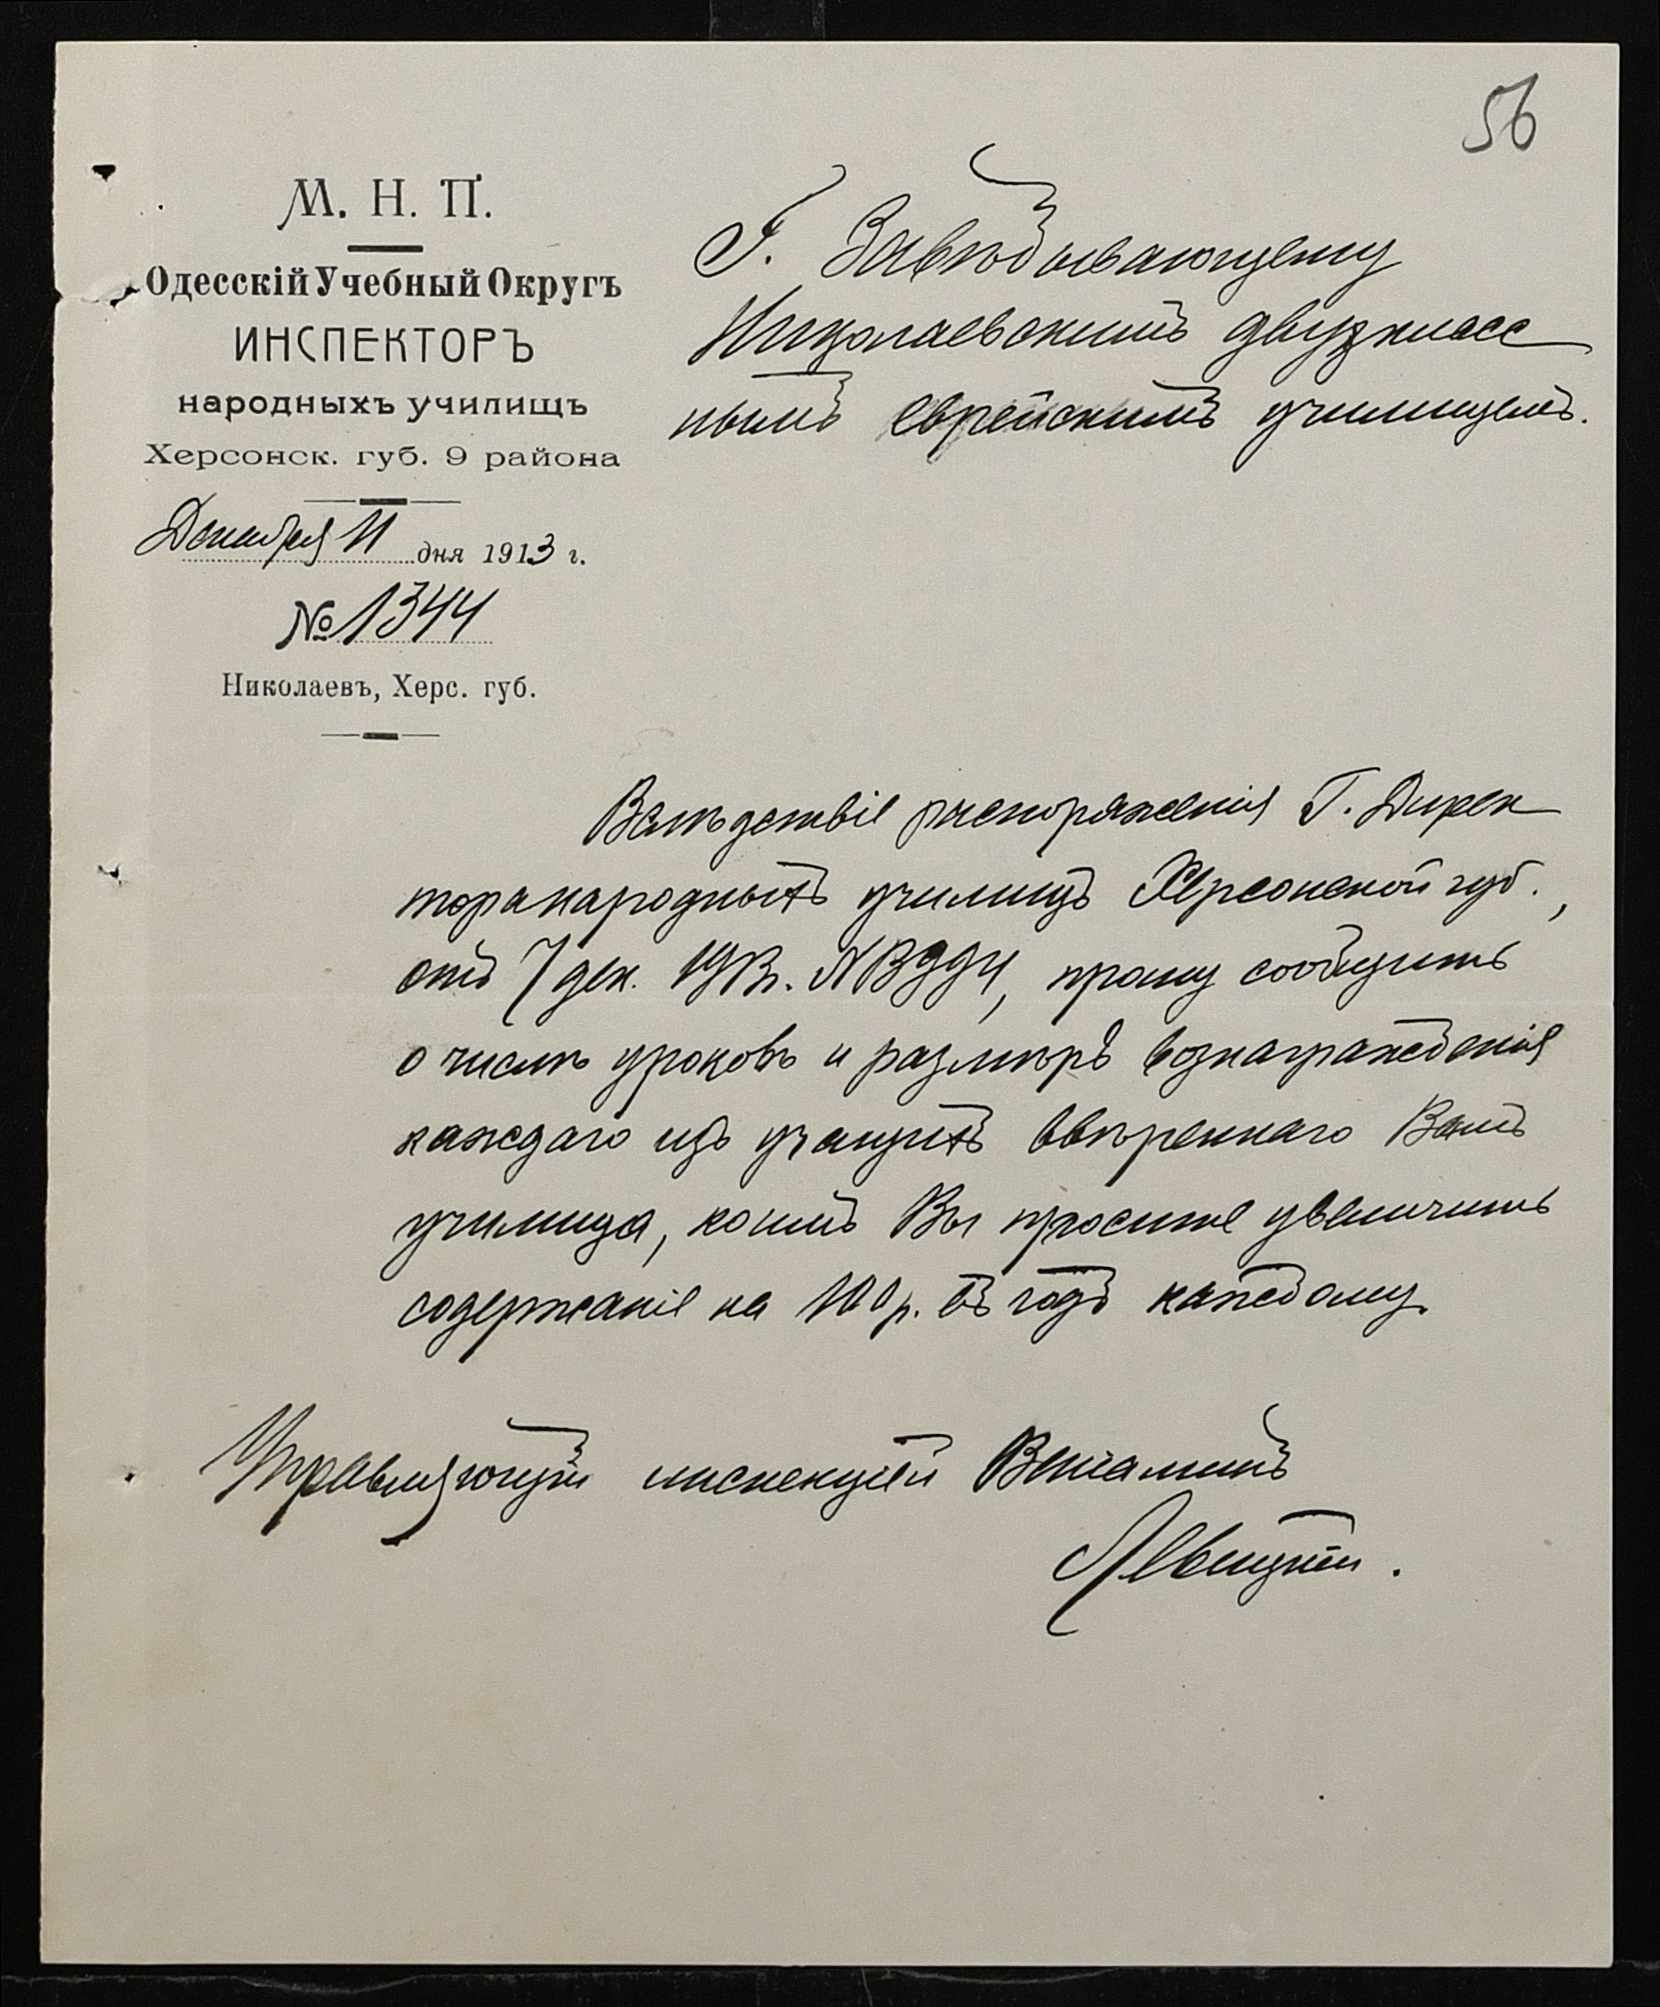 56
М. Н. П.
Одесскій Учебный Округъ
ИНСПЕКТОРЪ
народныхъ училищъ
Херсонск. губ. 9 района
Декабря 11 дня 1913 г.
№ 1344
Николаевъ, Херс. губ.
Г. Завѣдывающему
Николаевскимъ двухкласс
нымъ еврейскимъ училищемъ.
Вслѣдствіе распоряженія Г. Дирек
тора народныхъ училищъ Херсонской губ.,
отъ 7 дек. 1913г. №3994, прошу сообщить
о числѣ уроковъ и размѣрѣ вознагражденія
каждаго изъ учащихъ ввѣреннаго Вамъ
училища, коимъ Вы просите увеличить
содержаніе на 100 р. въ годъ каждому.
Управляющій инспекціей Веніаминъ
Левицкій.